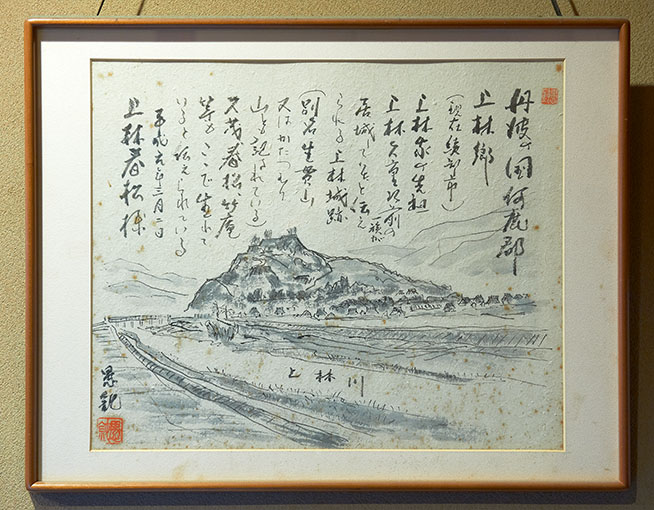 丹波の国何鹿郡
上林郷
(現在綾部市)
上林家の先祖
上林久重以前の
一族が
居城でなたと伝え
られる上林城跡
(別名生貫山
又はかたつむり
山とも記されている)
久茂 春松 竹庵
等もここで生れて
いると伝えられている
平成六年三月二日
上林春松様
上林川